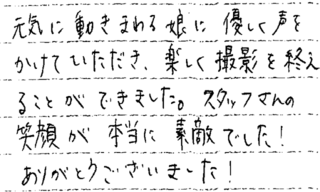 元気に動きまわる娘に優しく声を
かけていただき、楽しく撮影を終え
ることができました。スタッフさんの
笑顔が本当に素敵でした！
ありがとうございました！